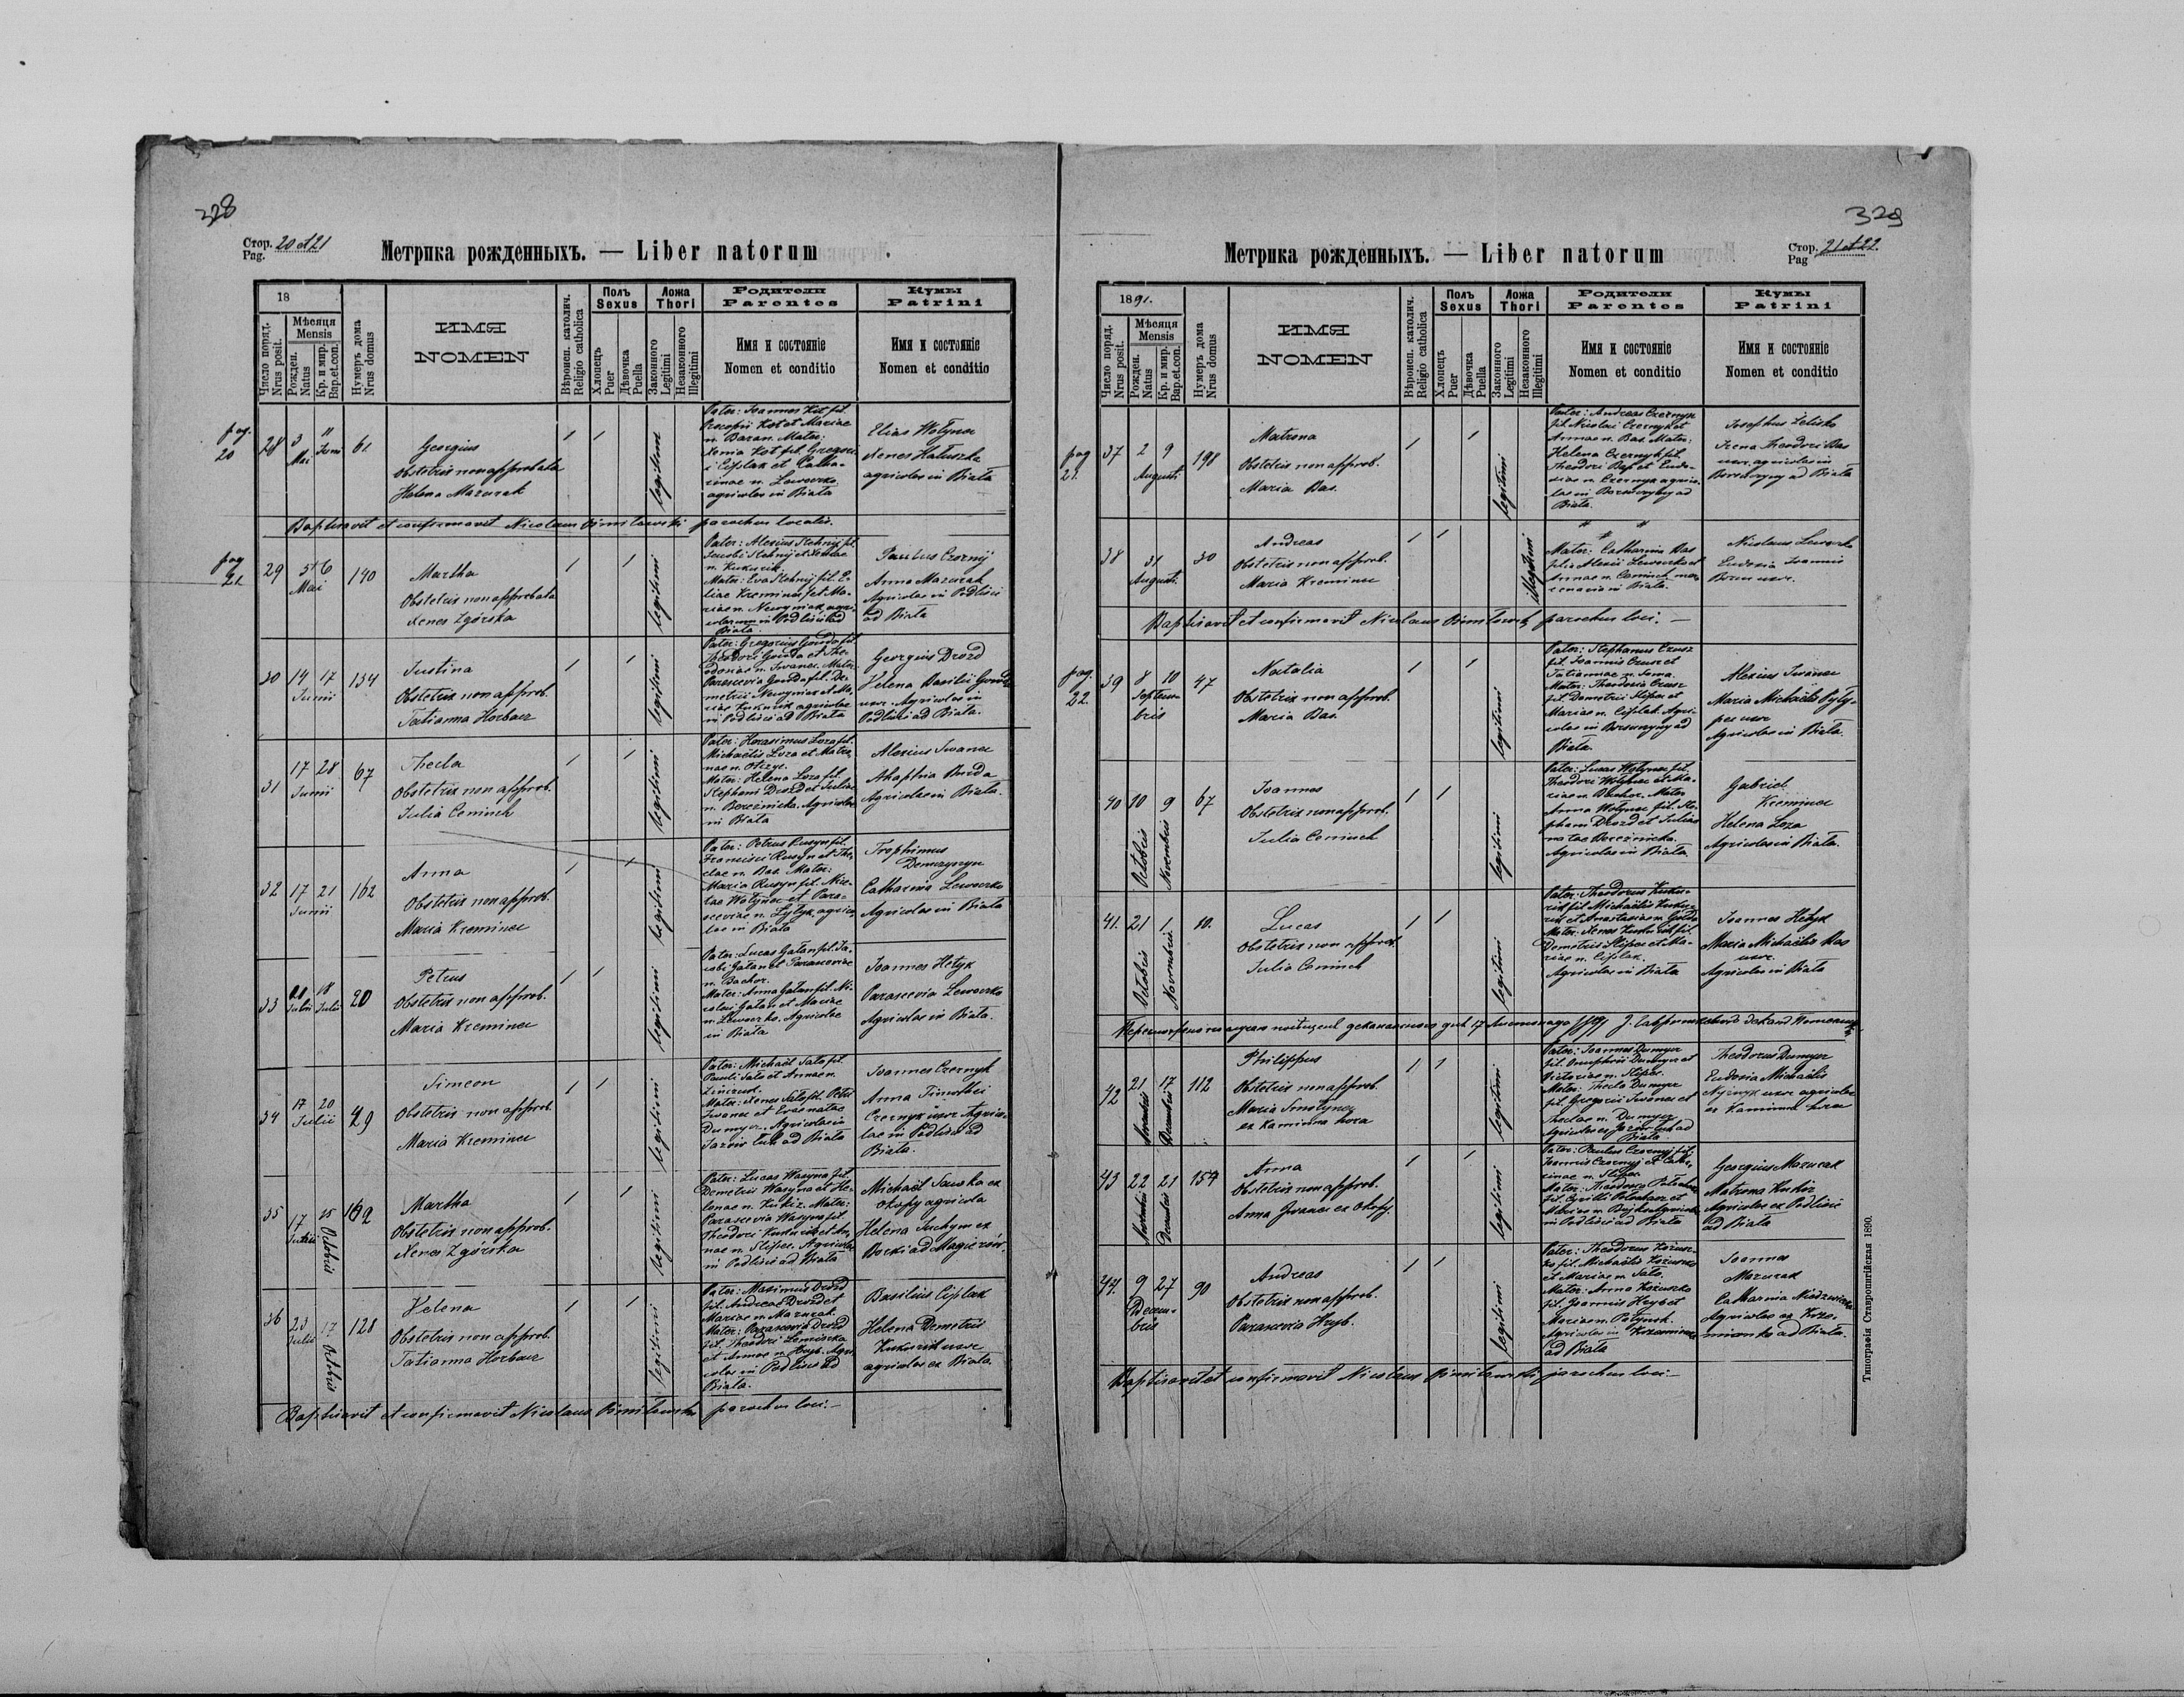 328
Стор. 20 et 21
Pag.
Метрика рожденныхъ. — Liber natorum
18
Число поряд.
Nrus posit.
Мѣсяця
Mensis
Рожден.
Natus
Кр. и мир.
Bap.et.con.
Нумеръ дома
Nrus domus
ИМЯ
NOMEN
Вѣроисп. католич.
Religio catholica
Полъ
Sexus
Хлопецъ
Puer
Дѣвочка
Puella
Ложа
Thori
Законного
Legitimi
Незаконного
Illegitimi
Родители
Parentes
Имя и состояніе
Nomen et conditio
Кумы
Patrini
Имя и состояніе
Nomen et conditio
pag.
20
28 3 Mai 11 Juni 61
Georgius
Obstetrix non approbata
Helena Mazurak
legitimi
Pater: Joannes Kot fil.
Procopii Kot et Mariae
n. Baran. Mater:
Xenia Kot fil. Gregorii
Ciplak et Catha-
rinae n. Leweczko
agricolae in Biała
Elias Wołynec
Xenes Hałuszka
agricolae in Biała
Baptisavit et confirmavit Nicolaus parochus localis.
pag
21
29 5 6 Mai 140
Martha
Obstetrix non approbata
Xenes Zgórska
legitimi
Pater: Alexius Stehnij fil.
Jacobi Stehnij et
n. Kukurik.
Mater: Eva Stehnij fil. E-
liae Kreminec et Ma-
riae n.
in Podlisie ad
Biała.
Paulus Czornij
Anna Mazurak
Agricolae in Podlisie
ad Biała
30 14 17 Junii 134
Justina
Obstetrix non approb.
Tatianna Horbacz
legitimi
Pater: Gregorius Gowda fil.
Theodori Gowda et The-
n. Iwanec. Mater:
Parascevia Gowda fil. De-
metrii et Ma-
riae Kukurik agricolae
in Podlisie ad Biała
Georgius Drozd
Helena Basilii Gowda
uxor. Agricolae in
Podlisie ad Biała.
31 17 28 Junii 67
Thecla
Obstetrix non approb.
Julia Ceminch
legitimi
Pater: Harasimus Loza fil.
Michaëlis Loza et Matro-
nae n.
Mater: Helena Loza fil.
Stephani Drozd et Juliae
n. Bereznicka. Agricolae
in Biała
Alexius Iwanec
Ahaphia Burda
Agricolae in Biała.
32 17 21 Junii 162
Anna
Obstetrix non approb.
Maria Kreminec
legitimi
Pater: Petrus Rusyn fil.
Francisci Rusyn et The-
clae n. Bas. Mater:
Maria Rusyn fil. Nice-
tae Wołynec et Para-
sceviae n. Łytyk agrico-
lae in Biała
Trophimus
Demczyszyn
Catharina Leweczko
Agricolae in Biała
33 18 Julii 20
Petrus
Obstetrix non approb.
Maria Kreminec
legitimi
Pater: Lucas Gałan fil. Ja-
cobi Gałan et Parasceviae
n. Bachor.
Mater: Anna Gałan fil. Ni-
colai Gałan et Mariae
n. Leweczko. Agricolae
in Biała
Joannes Hetyk
Parascevia Leweczko
Agricolae in Biała.
34 17 20 Julii 29
Simeon
Obstetrix non approb.
Maria Kreminec
legitimi
Pater: Michaël Sało fil.
Pauli Sało et Annae n.
Mater: Xenes Sało fil. Petri
Iwanec et Evae natae
Dumycz. Agricolae in
ad Biała
Joannes Czernyk
Anna Timothei
Czernyk uxor Agrico-
lae in Podlisie ad
Biała.
35 17 Julii 25 Octobris 162
Martha
Obstetrix non approb.
Xenes Zgórska
legitimi
Pater: Lucas Wasyna fil.
Demetrii Wasyna et He-
lenae n. Kukiz. Mater:
Parascevia Wasyna fil.
Theodori Kukurik et An-
nae n. Slipec. Agricolae
in Podlisie ad Biała
Michaël Sawka ex
Okopy agricola
Helena Suchym ex
Borki ad Magierów.
36 23 Julii 17 Octobris 128
Helena
Obstetrix non approb.
Tatianna Horbacz
legitimi
Pater: Maximus Drozd
fil. Andreae Drozd et
Mariae n. Mazurak.
Mater: Parascevia Drozd
fil. Theodori Lemiszka
et Annae n. Hryb. Agri-
colae in Podlisie ad
Biała.
Basilius Ciplak
Helena Demetrii
Kukurik uxor
agricolae ex Biała.
Baptisavit et confirmavit Nicolaus parochus loci.—
329
Стор. 21 et 22.
Pag
Метрика рожденныхъ. — Liber natorum
1891.
Число поряд.
Nrus posit.
Мѣсяця
Mensis
Рожден.
Natus
Кр. и мир.
Bap.et.con.
Нумеръ дома
Nrus domus
ИМЯ
NOMEN
Вѣроисп. католич.
Religio catholica
Полъ
Sexus
Хлопецъ
Puer
Дѣвочка
Puella
Ложа
Thori
Законного
Legitimi
Незаконного
Illegitimi
Родители
Parentes
Имя и состояніе
Nomen et conditio
Кумы
Patrini
Имя и состояніе
Nomen et conditio
pag
21.
37 2 9 Augusti 198
Matrona
Obstetrix non approb.
Maria Bas.
legitimi
Pater: Andreas Czernyk
fil. Nicolai Czernyk et
Annae n. Bas. Mater:
Helena Czernyk fil.
Theodori Bas et Eudo-
xiae n. Czernyk agrico-
lae in ad
Biała.
Josephus Zelisko
Irena Theodori Bas
uxor agricolae in
ad Biała
38 31 Augusti 30
Andreas
Obstetrix non approb.
Maria Kreminec
illegitimi
Mater: Catharina Bas
filia Alexii Leweczko et
Annae n. Ceminch mer-
cenaria in Biała.
Nicolaus Leweczko
Eudoxia Joannis
uxor.
Baptisavit et confirmavit Nicolaus parochus loci. —
pag.
22.
39 8 10 Septem-
bris 47
Natalia
Obstetrix non approb.
Maria Bas.
legitimi
Pater: Stephanus Czusz
fil. Joannis Czusz et
Tatiannae n. Soma.
Mater: Theodosia Czusz
fil. Demetrii Slipec et
Mariae n. Ciplak. Agri-
colae in ad
Biała.
Alexius Iwanec
Maria Michaëlis Pyły-
pec uxor
Agricolae in Biała.
40 10 Octobris 9 Novembris 67
Joannes
Obstetrix non approb.
Julia Ceminch
legitimi
Pater: Lucas Wołynec fil.
Theodori Wołynec et Ma-
riae n. Bachor. Mater
Anna Wołynec fil. Ste-
phani Drozd et Juliae
natae Bereznicka.
Agricolae in Biała.
Gabriel
Kreminec
Helena Loza
Agricolae in Biała.
41. 21 Octobris 1 Novembris 10.
Lucas
Obstetrix non approb.
Julia Ceminch
legitimi
Pater: Theodorus Kuku-
rik fil. Michaëlis Kuku-
rik et Anastasiae n. Gowda
Mater: Xenes Kukurik fil.
Demetrii Slipec et Ma-
riae n. Ciplak.
Agricolae in Biała
Joannes Hetyk
Maria Michaëlis Bas
uxor
Agricolae in Biała
42 21 Novembris 17 Decembris 112
Philippus
Obstetrix non approb.
Maria Smołynec
ex Kaminna hora
legitimi
Pater: Joannes Dumycz
fil. Onuphrii Dumycz et
Victoriae n. Slipec.
Mater: Thecla Dumycz
fil. Gregorii Iwanec et
Theclae n. Dumycz
Agricolae ex ad
Biała.
Theodorus Dumycz
Eudoxia Michaëlis
uxor agricolae
ex Kaminna hora
43 22 Novembris 21 Decembris 154
Anna
Obstetrix non approb.
Anna Iwanec ex Okopy.
legitimi
Pater: Paulus Czornyj fil.
Joannis Czornyj et Catha-
rinae n. Slipec.
fil. Cyrilli et
Mariae n.
in Podlisie ad Biała
Georgius Mazurak
Matrona Kukiz
Agricolae ex Podlisie
ad Biała
44. 9 Decem-
bris 27 90
Andreas
Obstetrix non approb.
Parascevia Hryb.
legitimi
Pater: Theodorus Kożusz-
ko fil. Michaëlis Kożuszko
et Mariae n. Sało.
Mater: Anna Kożuszko
fil. Joannis Hryb et
Mariae n.
Agricolae in
ad Biała
Joannes
Mazurak
Catharina
Agricolae ex Krze-
mianka ad Biała.
Baptisavit et confirmavit Nicolaus parochus loci.—
Типографія Ставропигійская 1890.